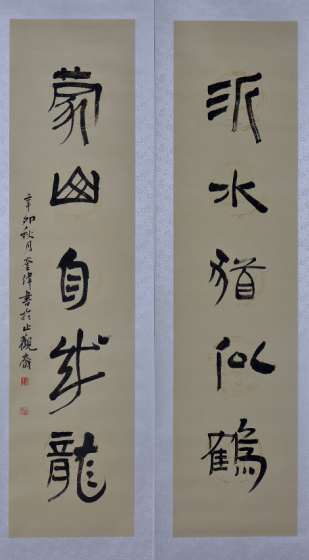 沂水犹似鶴
蒙山自成龍
辛卯秋月奎偉書於止觀齋